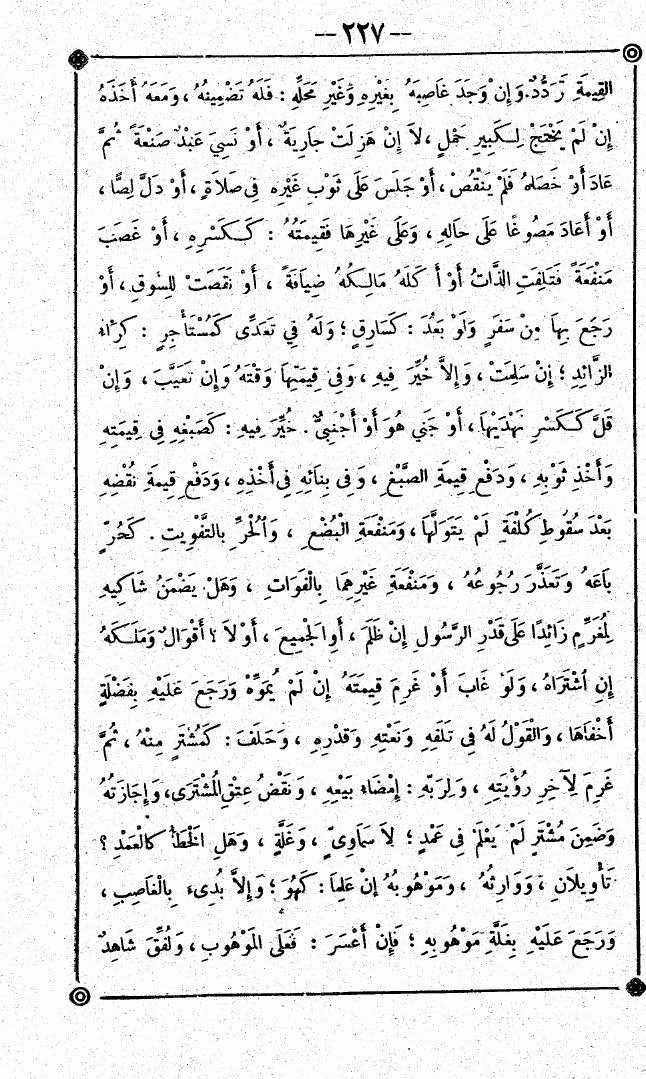 -- ٢٢٧ --
القِيمَةِ تَرَدُّدٌ. وَإِنْ وَجَدَ غَاصِبَهُ بِغَيْرِهِ وَغَيْرِ مَحَلِّهِ : فَلَهُ تَضْمِينُهُ ، وَمَعَهُ أَخَذَهُ
إِنْ لَمْ يَحْتَجْ لِكَبِيرِ حَمْلٍ ، لاَ إِنْ هَزِلَتْ جَارِيَةٌ ، أَوْ نَسِيَ عَبْدٌ صَنْعَةً ثُمَّ
عَادَ أَوْ خَصَاهُ فَلَمْ يَنْقُصْ ، أَوْ جَلَسَ عَلَى ثَوْبِ غَيْرِهِ فِي صَلاَةٍ ، أَوْ دَلَّ لِصًّا ،
أَوْ أَعَادَ مَصُوغًا عَلَى حَالِهِ ، وَعَلَى غَيْرِهَا فَقِيمَتُهُ : كَكَسْرِهِ ، أَوْ غَصَبَ
مَنْفَعَةً فَتَلِفَتِ الذَّاتُ أَوْ أَكَلَهُ مَالِكُهُ ضِيَافَةً ، أَوْ نَقَصَتْ لِلسُّوقِ ، أَوْ
رَجَعَ بِهَا مِنْ سَفَرٍ وَلَوْ بَعُدَ : كَسَارِقٍ ؛ وَلَهُ فِي تَعَدِّى كَمُسْتَأْجِرٍ : كِرَاءُ
الزَّائِدِ ؛ إِنْ سَلِمَتْ ، وَإِلاَّ خُيِّرَ فِيهِ ، وَفِي قِيمَتِهَا وَقْتَهُ وَإِنْ تَعَيَّبَ ، وَإِنْ
قَلَّ كَكَسْرِ نَهْدَيْهَا ، أَوْ جَنَى هُوَ أَوْ أَجْنَبِىٌّ . خُيِّرَ فِيهِ : كَصَبْغِهِ فِي قِيمَتِهِ
وَأَخْذِ ثَوْبِهِ ، وَدَفْعِ قِيمَةِ الصَّبْغِ ، وَفِي بِنَائِهِ فِي أَخْذِهِ ، وَدَفْعِ قِيمَةِ نُقْضِهِ
بَعْدَ سُقُوطِ كُلْفَةٍ لَمْ يَتَوَلَّهَا ، وَمَنْفَعَةِ الْبُضْعِ ، وَالْحُرِّ بِالتَّفْوِيتِ . كَحُرٍّ
بَاعَهُ وَتَعَذَّرَ رُجُوعُهُ ، وَمَنْفَعَةِ غَيْرِهِمَا بِالْفَوَاتِ ، وَهَلْ يَضْمَنُ شَاكِيهِ
لِمُغَرِّمٍ زَائِدًا عَلَى قَدْرِ الرَّسُولِ إِنْ ظَلَمَ ، أَوِ الْجَمِيعَ ، أَوْ لاَ ؟ أَقْوَالٌ وَمَلَكَهُ
إِنِ اشْتَرَاهُ ، وَلَوْ غَابَ أَوْ غَرِمَ قِيمَتَهُ إِنْ لَمْ يُمَوِّهْ وَرَجَعَ عَلَيْهِ بِفَضْلَةٍ
أَخْفَاهَا ، وَالْقَوْلُ لَهُ فِي تَلَفِهِ وَنَعْتِهِ وَقَدْرِهِ ، وَحَلَفَ : كَمُشْتَرٍ مِنْهُ ، ثُمَّ
غَرِمَ لِآخِرِ رُؤْيَتِهِ ، وَلِرَبِّهِ : إِمْضَاءُ بَيْعِهِ ، وَنَقْضُ عِتْقِ الْمُشْتَرَى، وَإِجَازَتُهُ
وَضَمِنَ مُشْتَرٍ لَمْ يَعْلَمْ فِي عَمْدٍ ؛ لاَ سَمَاوِىٍّ ، وَغَلَّةٍ ، وَهَلِ الْخَطَأُ كَالْعَمْدِ ؟
تَأْوِيلاَنِ ، وَوَارِثُهُ ، وَمَوْهُوبُهُ إِنْ عَلِمَا : كَهُوَ ؛ وَإِلاَّ بُدِىءَ بِالْغَاصِبِ ،
وَرَجَعَ عَلَيْهِ بِغَلَّةِ مَوْهُوبِهِ ؛ فَإِنْ أَعْسَرَ : فَعَلَى الْمَوْهُوبِ ، وَلُفِّقَ شَاهِدٌ